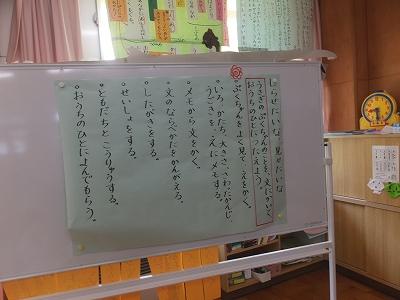 らせたいな 見せたいな
うさぎのぷくちゃんのことを、文にかいて
おうちのひとにつたえよう。
ぷくちゃんをよく見て、えをかく。
いろ、かたち、大きさ、さわったかんじ、
うごきを、えにメモする。
メモから文をかく。
文のならべかたをかんがえる。
したがきをする。
せいしょをする。
ともだちとこうりゅうする。
おうちのひとによんでもらう。